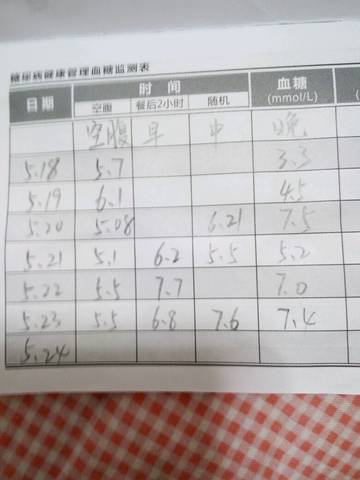 糖尿病健康管理血糖监测表
日期 时间 血糖
空腹 餐后2小时 随机 (mmol/L)
空腹 早 中 晚
5.18 5.7 3.3
5.19 6.1 4.5
5.20 5.08 6.21 7.5
5.21 5.1 6.2 5.5 5.2
5.22 5.5 7.7 7.0
5.23 5.5 6.8 7.6 7.4
5.24